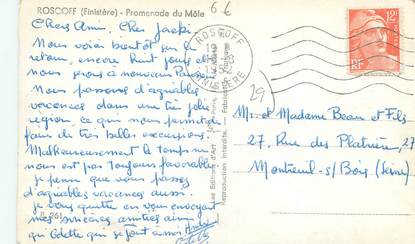 ROSCOFF (Finistère) - Promenade du Môle
6 €
Chers Amis, Cher Jacki,
Nous voici bientôt sur le
retour, encore huit jours et
nous serons à nouveau Paris
Nous passons d'agréables
vacances dans une très jolie
région, ce qui nous permet de
faire de très belles excursions.
Malheureusement le temps ne
nous est pas toujours favorable.
je pense que vous passez
d'agréables vacances aussi.
je vous quitte en vous envoyant
mes sincères amitiés ainsi
que Odette qui se joint à moi
André
Odette
R. 261
Les Editions d'Art
Reproduction Interdite
ROSCOFF
FINISTERE
12F
RF
29
Mr. et Madame Bean et Fils
27, Rue des Platrières 27
Montreuil-s/Bois (Seine)